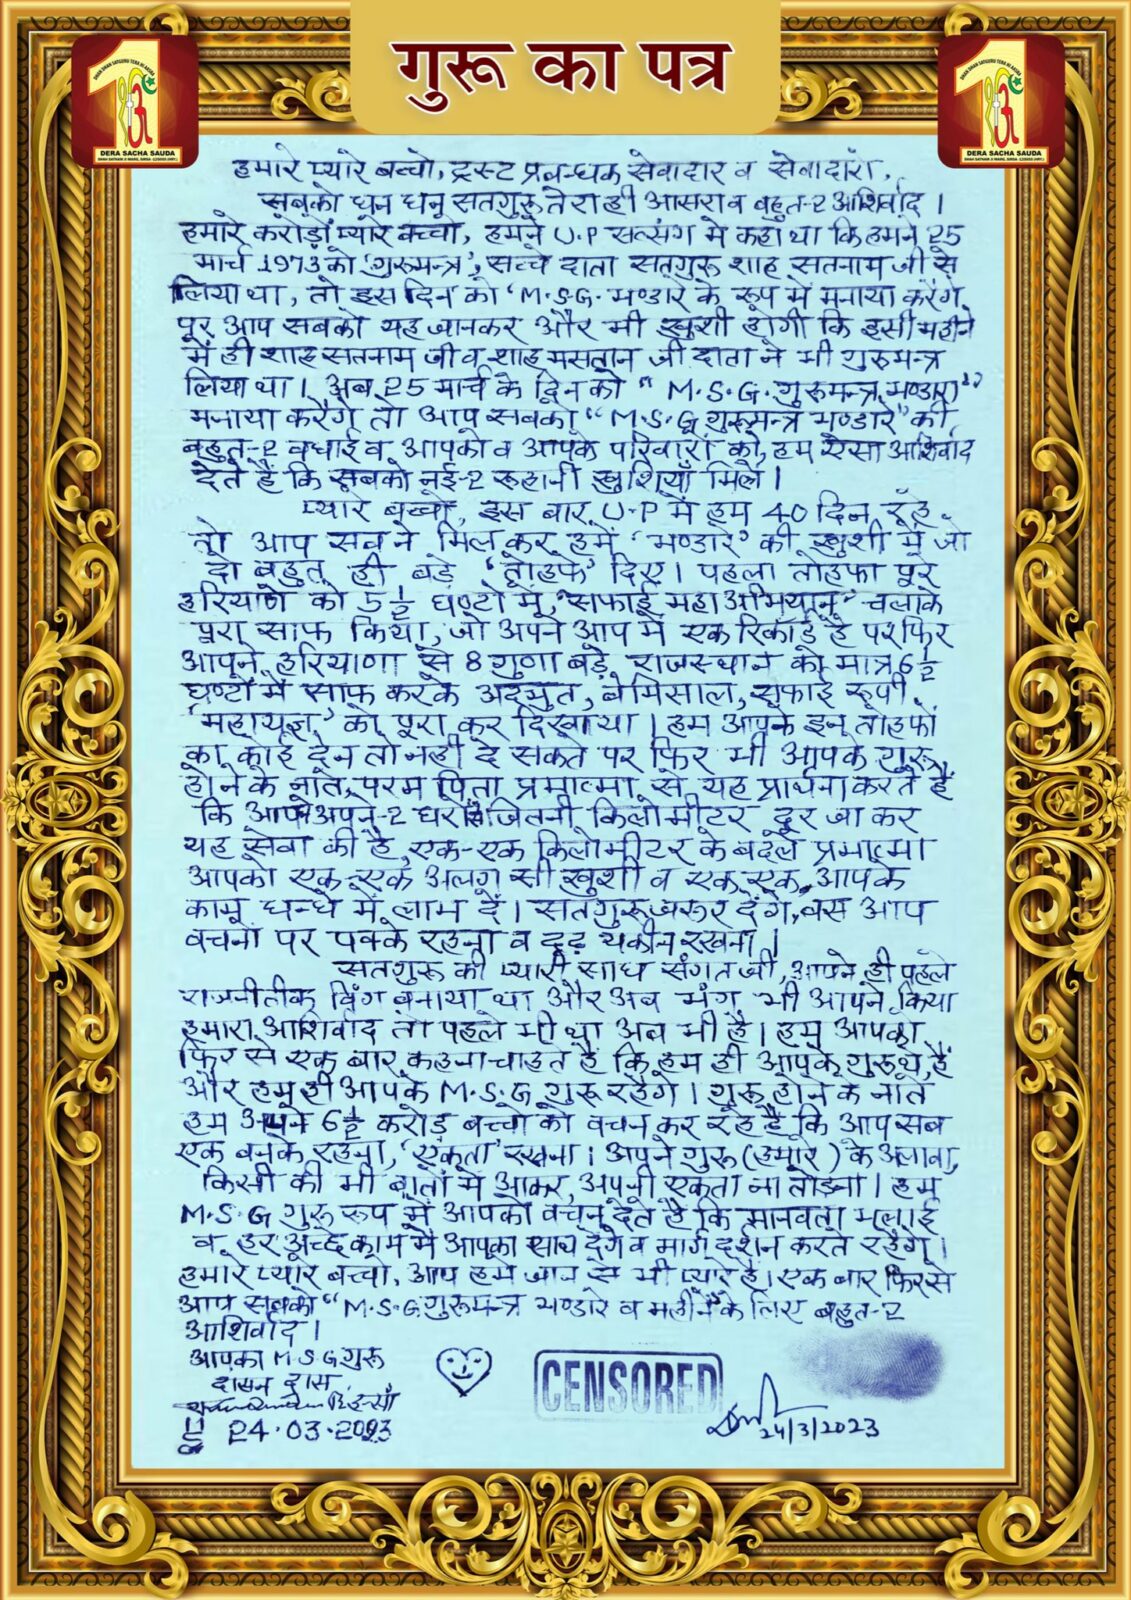 गुरू का पत्र
DHAN DHAN SATGURU TERA HI AASRA
DERA SACHA SAUDA
DHAN DHAN SATGURU TERA HI AASRA
DERA SACHA SAUDA
हमारे प्यारे बच्चो, ट्रस्ट प्रबन्धक सेवादार व सेवादारों,
सबको धन धन सतगुरू तेरा ही आसरा व बहुत-2 आशिर्वाद।
हमारे करोड़ों प्यारे बच्चो, हमने U.P सत्संग मे कहा था कि हमने 25
मार्च 1973 को 'गुरूमन्त्र', सच्चे दाता सतगुरू शाह सतनाम जी से
लिया था, तो इस दिन को 'M.S.G. भण्डारे के रूप में मनाया करेंगे
पर आप सबको यह जानकर और भी खुशी होगी कि इसी महीने
में ही शाह सतनाम जी व शाह मसतान जी दाता ने भी गुरूमन्त्र
लिया था। अब 25 मार्च के दिन को "M.S.G. गुरूमन्त्र भण्डारा"
मनाया करेंगे तो आप सबको "M.S.G गुरूमन्त्र भण्डारे" की
बहुत-2 बधाई व आपको व आपके परिवारों को, हम ऐसा आशिर्वाद
देते हैं कि सबको नई-2 रूहानी खुशियाँ मिलें।
प्यारे बच्चो, इस बार U.P में हम 40 दिन रहे.
तो आप सब ने मिल कर हमें 'भण्डारे' की खुशी में जो
दो बहुत ही बड़े 'तोहफे' दिए। पहला तोहफा पूरे
हरियाणे को 5 ½ घण्टो में, 'सफाई महा अभियान' चलाके
पूरा साफ किया, जो अपने आप मे एक रिकार्ड है पर फिर
आपने हरियाणा से 8 गुणा बड़े राजस्थान को मात्र 6 ½
घण्टों में साफ करके अदभुत, बेमिसाल, सफाई रूपी
'महायज्ञ' को पूरा कर दिखाया। हम आपके इन तोहफों
का कोई देन तो नहीं दे सकते पर फिर भी आपके गुरू
होने के नाते, परम पिता प्रमात्मा से यह प्रार्थना करते हैं
कि आपने अपने-2 घर से जितनी किलोमीटर दूर जा कर
यह सेवा की है, एक-एक किलोमीटर के बदले प्रमात्मा
आपको एक-एक अलग सी खुशी व एक-एक आपके
काम धन्धे में लाभ दें। सतगुरू जरूर देंगे, बस आप
वचनों पर पक्के रहना व दृढ़ यकीन रखना।
सतगुरू की प्यारी साध संगत जी, आपने ही पहले
राजनीतीक विंग बनाया था और अब भंग भी आपने किया
हमारा आशिर्वाद तो पहले भी था अब भी है। हम आपको
फिर से एक बार कहना चाहते हैं कि हम ही आपके गुरू थे, हैं
और हम ही आपके M.S.G गुरू रहेंगे। गुरू होने के नाते
हम अपने 6 ½ करोड़ बच्चो को वचन कर रहे हैं कि आप सब
एक बनके रहना, 'एकता' रखना। अपने गुरू (हमारे) के अलावा,
किसी की भी बातों में आकर, अपनी एकता ना तोड़ना। हम
M.S.G गुरू रूप में आपको वचन देते हैं कि मानवता भलाई
व हर अच्छे काम में आपका साथ देंगे व मार्ग दर्शन करते रहेंगे।
हमारे प्यारे बच्चो, आप हमें जान से भी प्यारे हैं। एक बार फिर से
आप सबको "M.S.G. गुरूमन्त्र भण्डारे व महीने" के लिए बहुत-2
आशिर्वाद।
आपका M.S.G गुरू
दासन दास
24.03.2023
CENSORED
24/3/2023